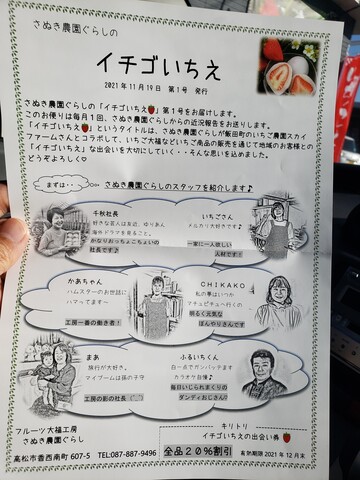 さぬき農園ぐらしの
イチゴいちえ
2021年11月19日 第1号 発行
さぬき農園ぐらしの「イチゴいちえ🍓」第1号をお届けします。
このお便りは毎月1回、さぬき農園ぐらしからの近況報告をお送りします。
「イチゴいちえ🍓」というタイトルは、さぬき農園ぐらしが飯田町のいちご農園スカイ
ファームさんとコラボして、いちご大福などいちご商品の販売を通じて地域のお客様との
「イチゴいちえ」な出会いを大切にしていく・・そんな思いを込めました。
どうぞよろしく♡
まずは・・
さぬき農園ぐらしのスタッフを紹介します♪
千秋社長
好きな芸人は友近、ゆりあん
海外ドラマを見ること。
かなりおっちょこちょいの
社長です♪
いちごさん
メルカリ大好きです♪
一家に一人欲しい
人材です！
かあちゃん
ハムスターのお世話に
ハマってます～
工房一番の働き者！
CHIKAKO
私の夢はいつか
マチュピチュへ行くの
明るく元気な
ぼんやりさんです
まあ
旅行が大好き。
マイブームは孫の子守
工房の影の社長
ふるいちくん
白一点でガンバッテます
カラオケ自慢♪
毎日いじられまくりの
ダンディおじさん♡
フルーツ大福工房
さぬき農園ぐらし
高松市香西南町607-5 TEL:087-887-9496
キリトリ
イチゴいちえの出会い券🍓
全品20％割引
有効期限2021年12月末